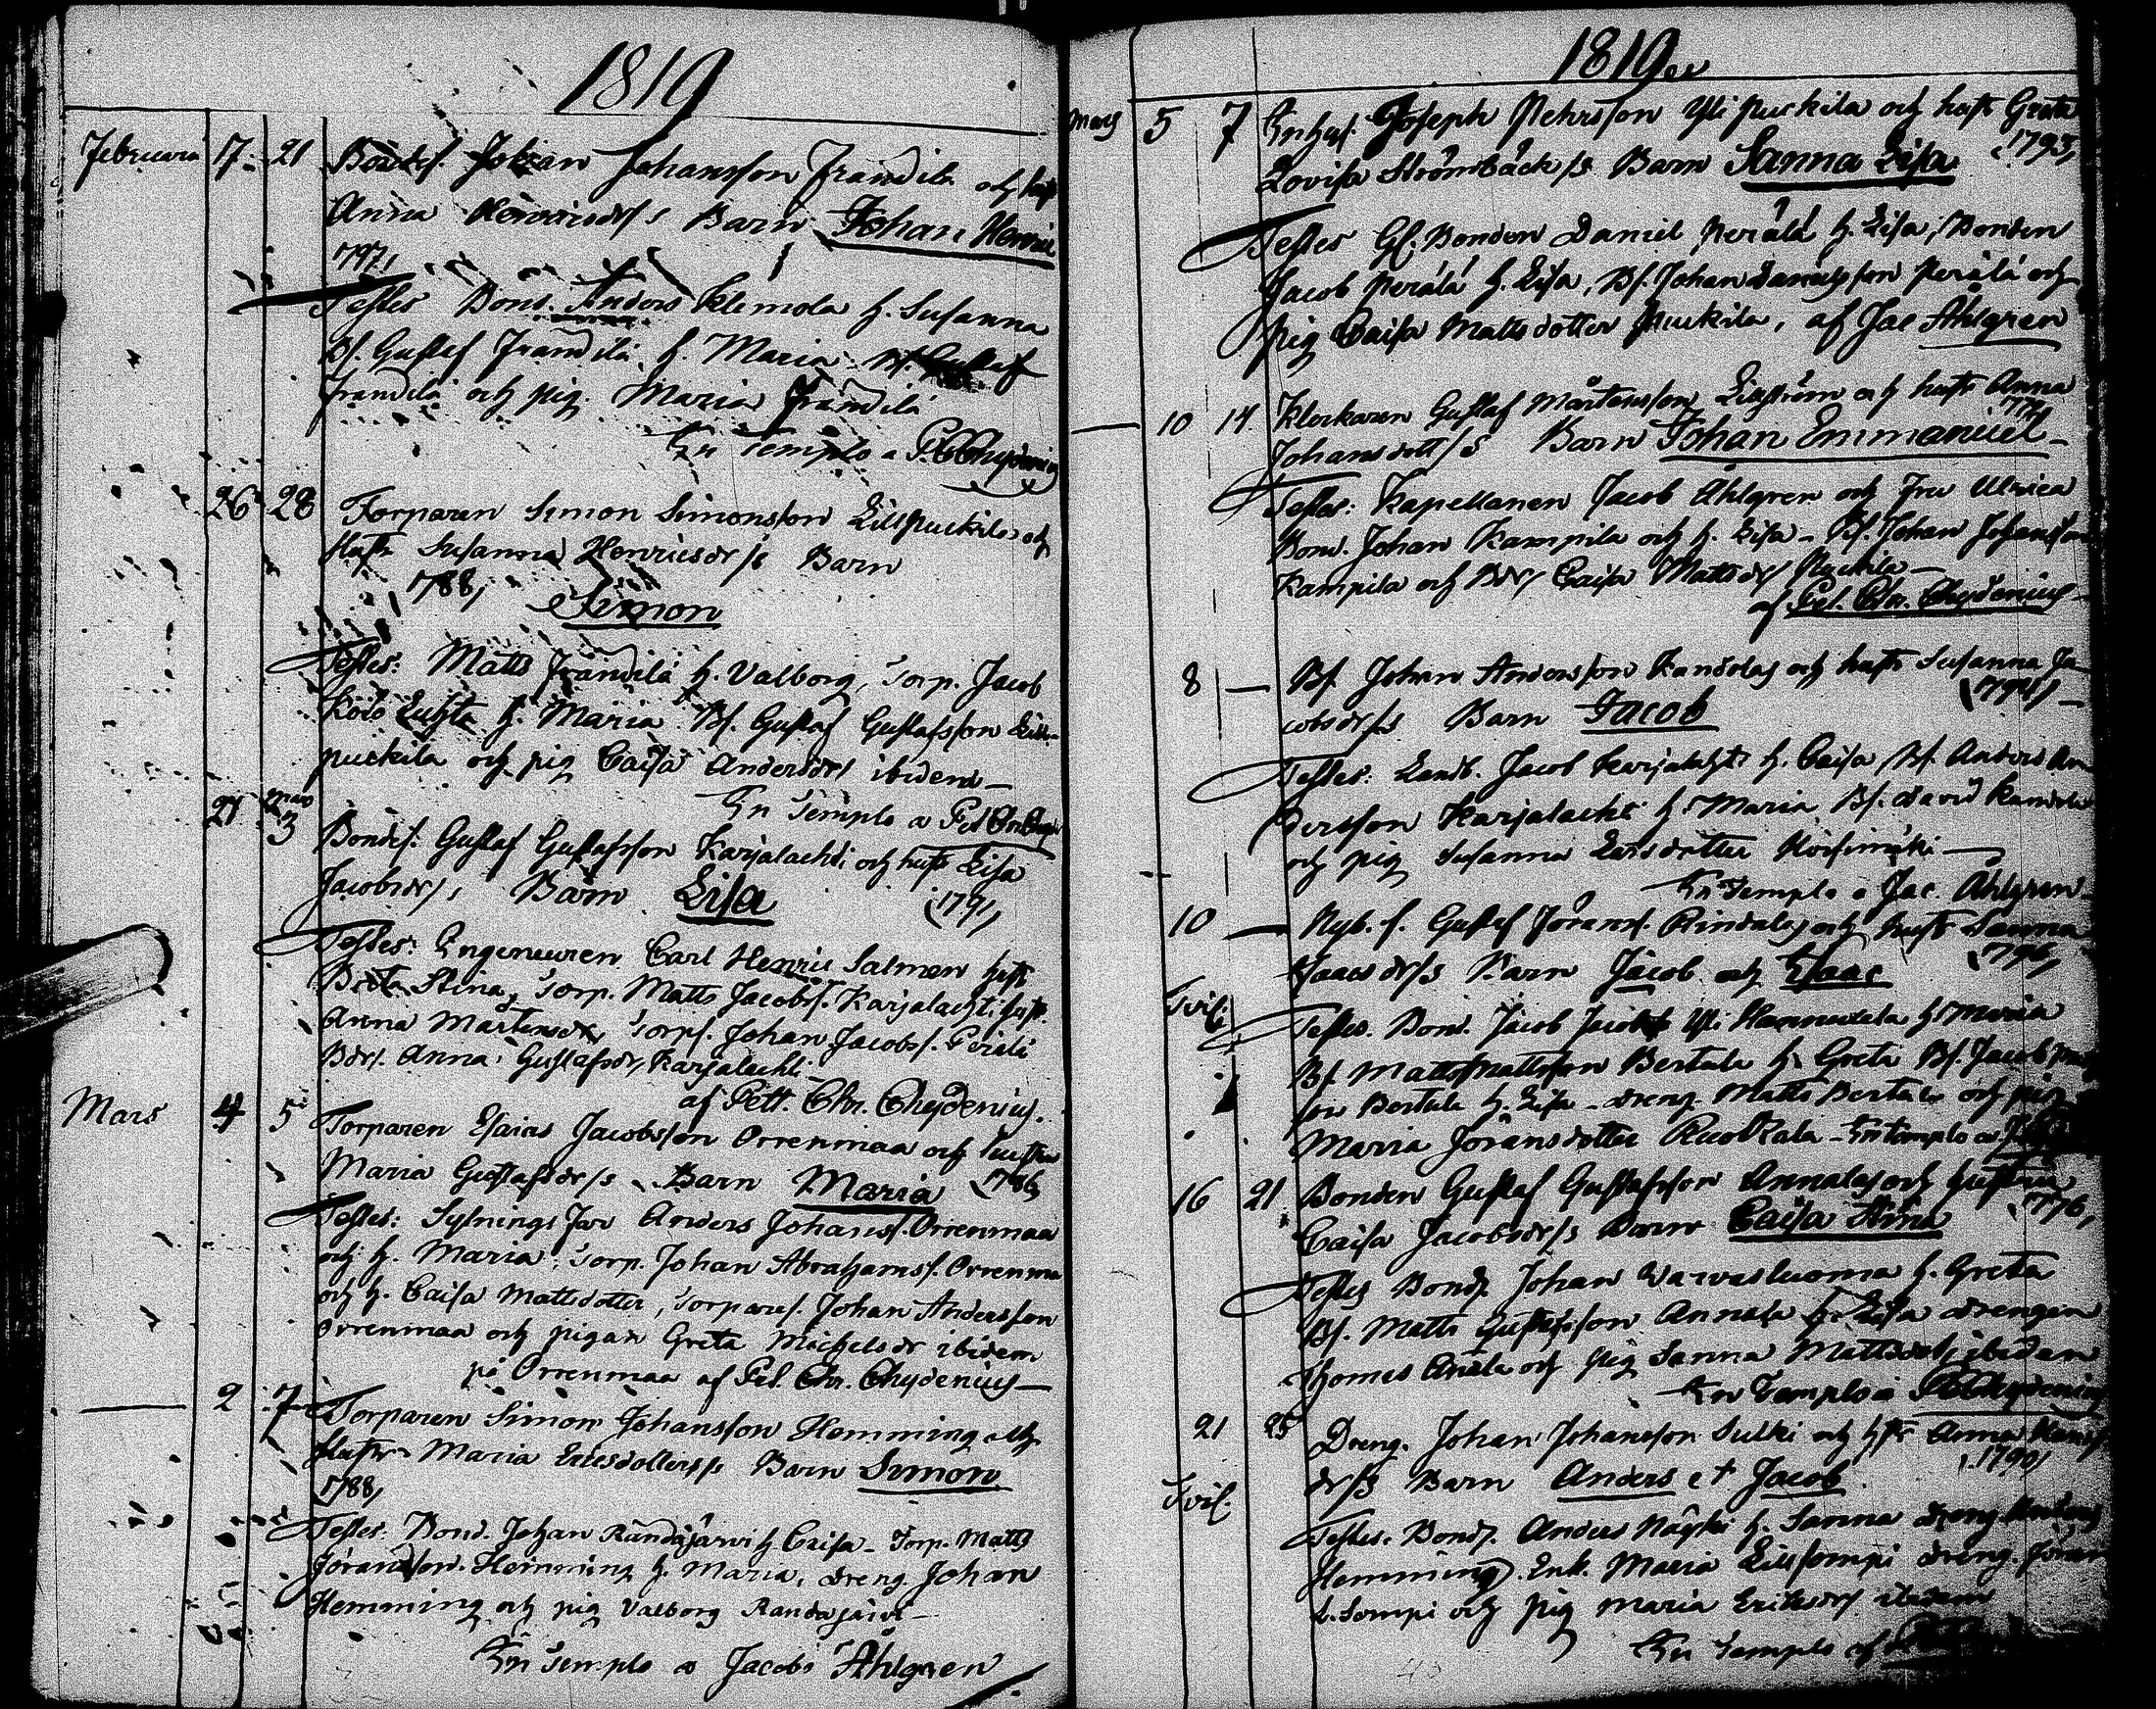 1819
Februari 17. 21 Bondes. Johan Johansson Frändilä och hust
Anna Henricsdr/s Barn Johan Henric
1797,
Testes Bond. Anders Klemola h. Susanna
Bs. Gustaf Frändilä h. Maria
Frändilä och pig. Maria Frändilä
In Templo a P. C. Chydenius
26 28 Torparen Simon Simonsson Lillpuckila och
Hustr Susanna Henricsdr/s Barn
1788,
Simon
Testes: Matts Frändilä h. Valborg, Torp. Jacob
h. Maria Bs. Gustaf Gustafsson Lill-
puckila och pig Caisa Andersdr ibidem
In Templo a Pet Chr
27 Mars 3 Bondes. Gustaf Gustafsson Karjalachti och hustr Lisa
Jacobsdr/s Barn Lisa (1791,
Testes: Ingeneuren Carl Henric Salmen hust
Brita Stina, Torp. Matts Jacobs. Karjalachti hustr.
Anna Mårtensdr, Torps. Johan Jacobs. Perälä
Bdr. Anna Gustafsdr Karjalachti
af Pett. Chr. Chydenius.
Mars 4 5 Torparen Esaias Jacobsson Orrenmaa och hustru
Maria Gustafsdr/s Barn Maria 1786,
Testes: Sytnings Far Anders Johans. Orrenmaa
och h. Maria, Torp. Johan Abrahams. Orrenma
och h. Caisa Mattsdotter, Torpares. Johan Andersson
Orrenmaa och pigan Greta Michelsdr ibidem
på Orrenmaa af Pet. Chr. Chydenius
2 7 Torparen Simon Johansson Hemming och
Hustr Maria Ericsdotters/s Barn Simon
1788,
Testes. Bond. Johan Rändäjärvi h. Caisa Torp. Matts
Jöransson Hemming h. Maria, dreng. Johan
Hemming och pig Valborg Randajärvi
In Templo a Jacobo Ahlgren
1819
Mars 5 7 Inhys. Joseph Pehrsson Yli puckila och hustr Greta
Lovisa Strömbäck/s Barn Sanna Lisa 1793,
Testes Gl. Bonden Daniel Perälä h. Lisa, Bonden
Jacob Perälä h. Lisa, Bs. Johan Danielsson Perälä och
pig Caisa Mattsdotter Puckila, af Jac Ahlgren
10 14. Klockaren Gustaf Mårtensson Lillström och hustr Anna
Johansdott/s Barn Johan Emmanuel
Testes: Kapellanen Jacob Ahlgren och Fru Ulrica
Bond. Johan Kampila och h. Lisa Bs. Johan Johansson
Kampila och Bdr Caisa Mattsdr Puckila
af Pet. Chr. Chydenius
8 Bs. Johan Andersson Kandola och hustr Susanna Ja
cobsdr/s Barn Jacob
Testes: Landb. Jacob Karjalacht h. Caisa, Bs. Anders An
dersson Karjalachti h. Maria Bs. David Kandola
och pig Susanna Larsdotter
In Templo a Jac. Ahlgren
10 Nyb. s. Gustaf Jörans. Rindala och hustr Sanna
Isaacsdr/s Barn Jacob och Isaac 1796,
Tvil.
Testes. Bond. Jacob Jacobs Yli h Maria
Bs. Matts Mattsson Bertula h. Greta Bs. Jacob
son Bertula h. Lisa dreng. Matts Bertula och pig
Maria Jöransdotter In templo a
16 21 Bonden Gustaf Gustafsson Annala och hustru
Caisa Jacobsdr/s Barn Caisa Stina 1776,
Testes Bond. Johan Warvasluoma h. Greta
Bs. Matts Gustafsson Annala h. Lisa drengen
Thomas Anala och pig Sanna Mattsdotr ibidem
In Templo a P. C. Chydenius
21 25 Dreng. Johan Johansson Sulki och hstr Anna
dr/s Barn Anders et Jacob 1790,
Tvil.
Testes. Bond. Anders Näpki h. Sanna dreng
Hemming. Enk. Maria Lillsompi dreng. Jöran
L. Sompi och pig Maria Ericsdr ibidem
In Templo af